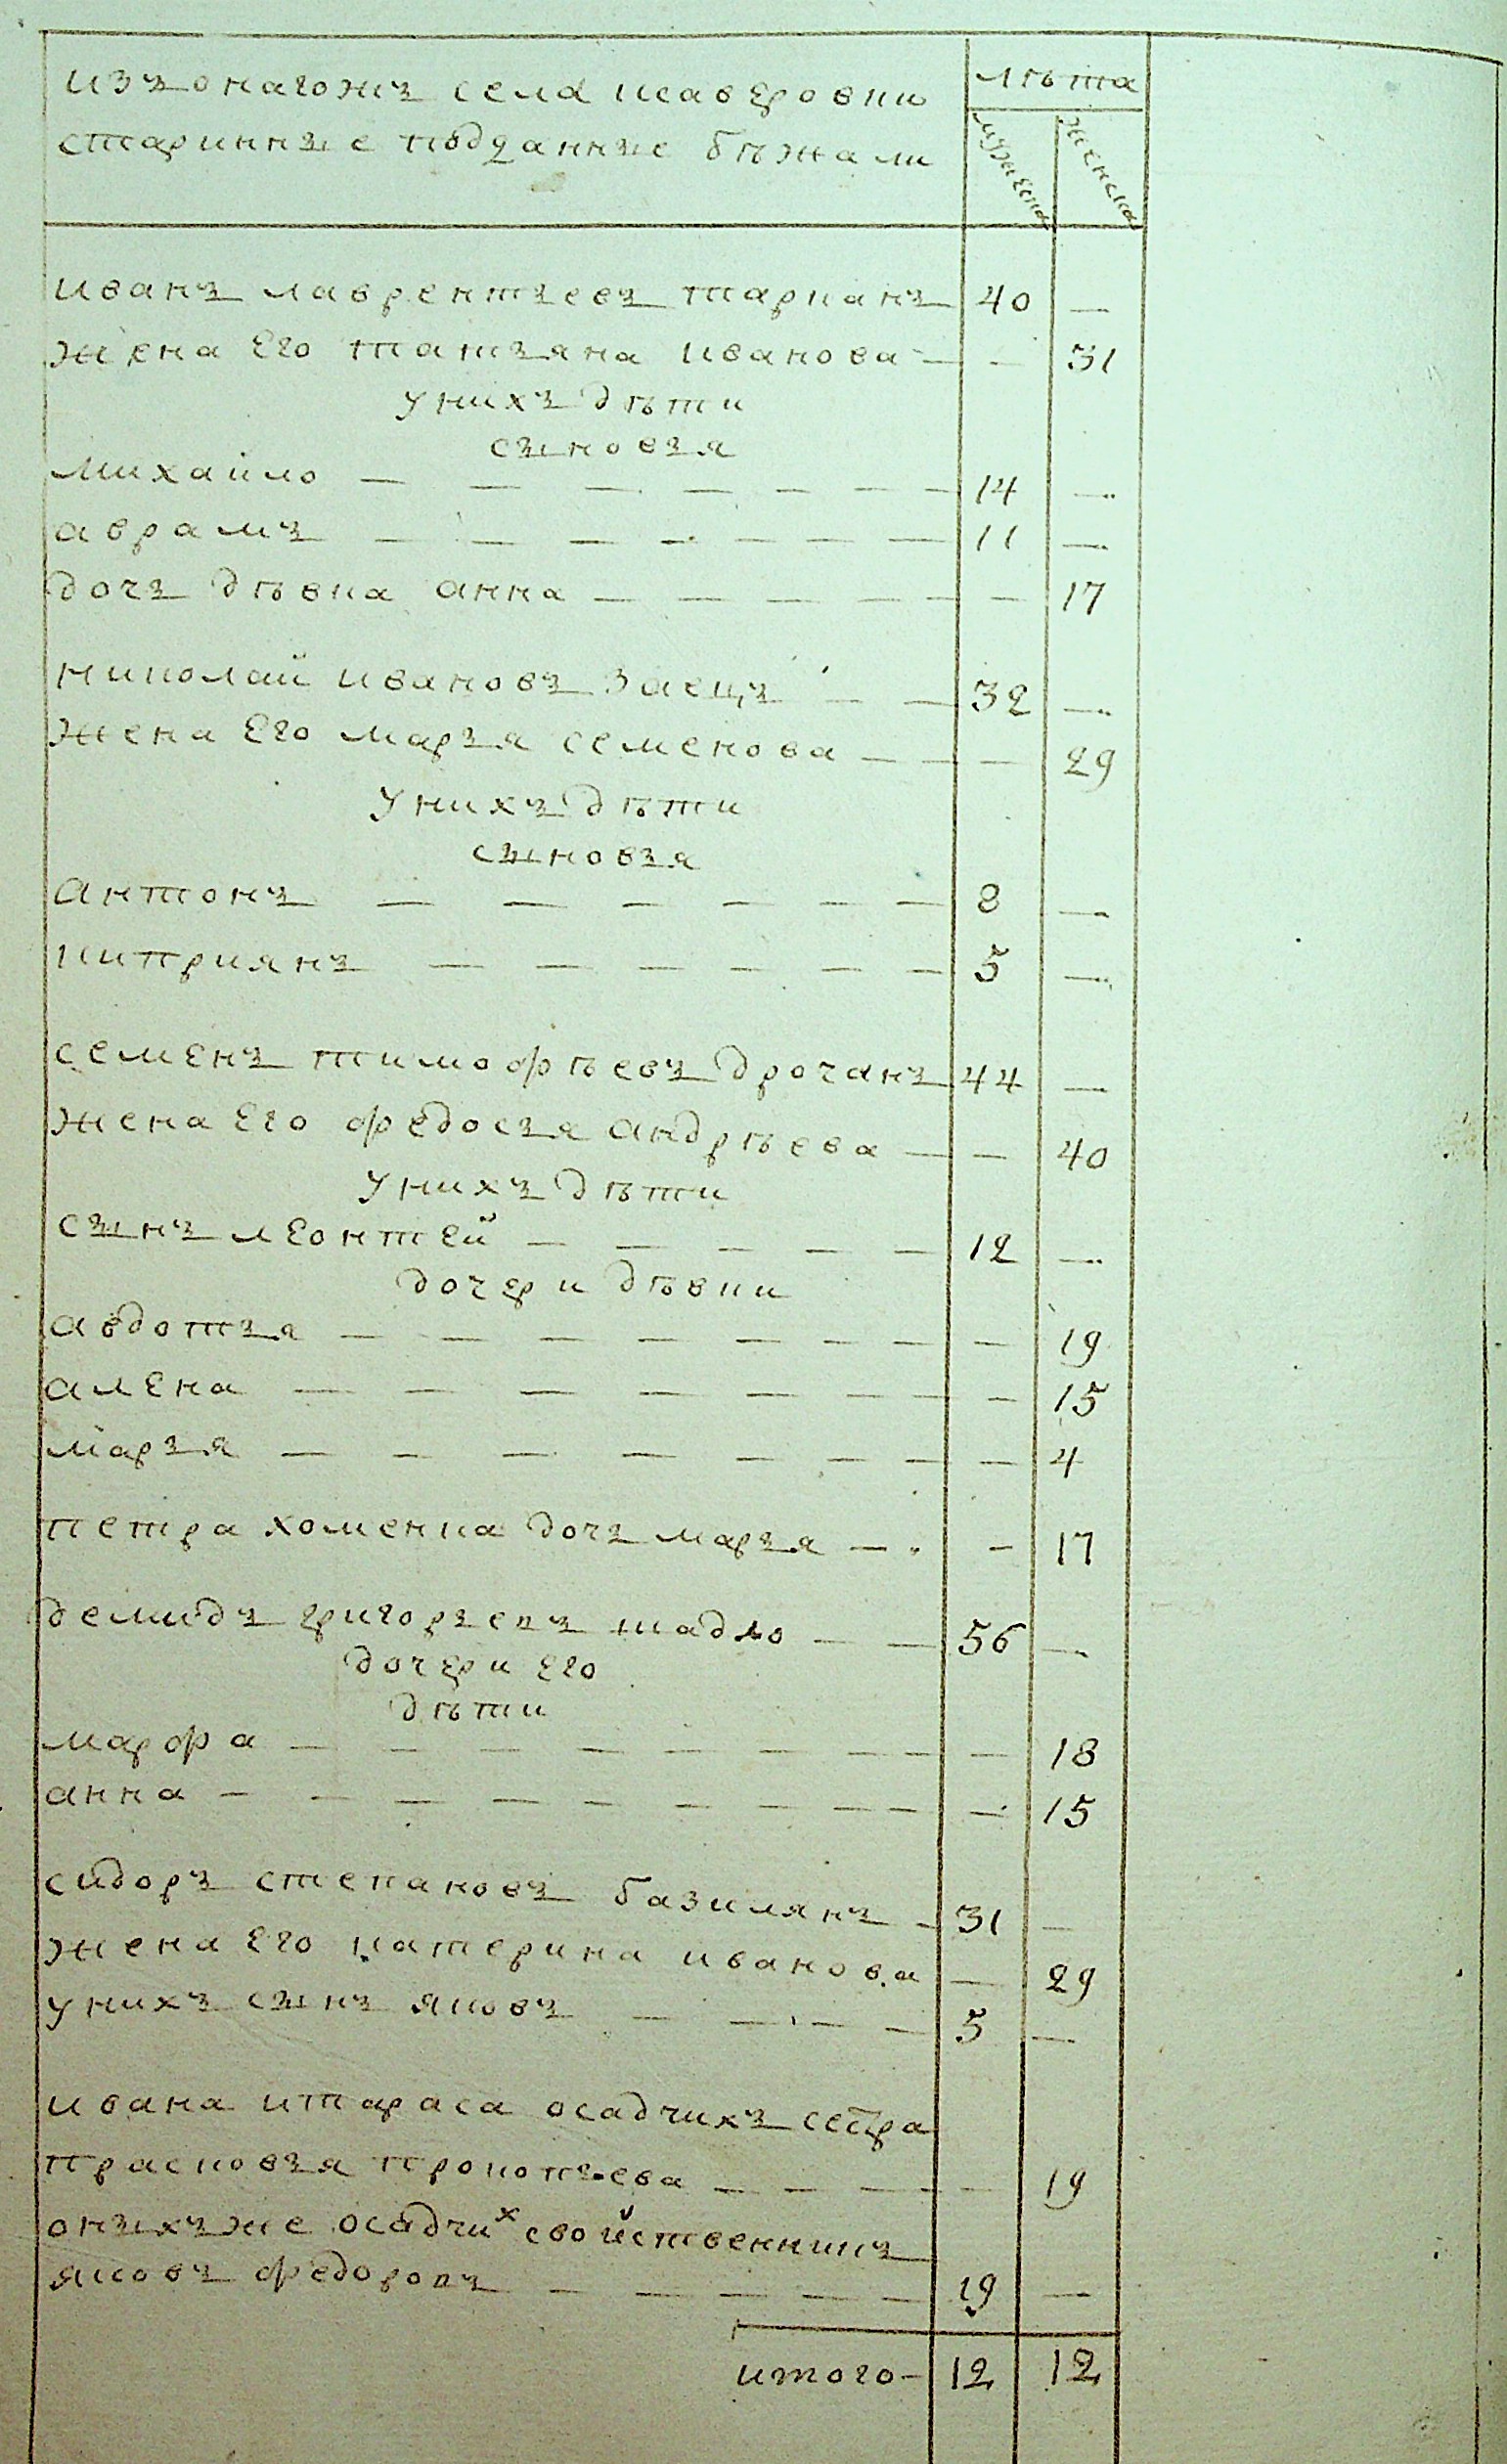 изъ онагожъ села кавѣровки лѣта
старинные подданные бѣжали мужеска женска
иванъ лаврентьевъ таранъ 40 —
жена его татьяна иванова — — 31
у нихъ дѣти
сыновья
михайло — — — — — — — 14 —
аврамъ — — — — — — — 11 —
дочь дѣвка анна — — — — — — 17
николай ивановъ заецъ — — 32 —
жена его марья семенова — — — 29
у нихъ дѣти
сыновья
антонъ — — — — — — 8 —
киприянъ — — — — — — 5 —
семенъ тимофѣевъ дрочанъ 44 —
жена его федосья андрѣева — — 40
у нихъ дѣти
сынъ леонтей — — — — — 12 —
дочери дѣвки
авдотья — — — — — — — — 19
алена — — — — — — — — 15
марья — — — — — — — — 4
петра хоменка дочь марья — — 17
демидъ григорьевъ шадло — — 56 —
дочери его
дѣти
марфа — — — — — — — — — 18
анна — — — — — — — — — — 15
сидоръ степановъ базилянъ — 31 —
жена его катерина иванова — 29
у нихъ сынъ яковъ — — — — 5 —
ивана и тараса осадчихъ сестра
прасковья прокопьева — — — — 19
оныхъ же осадчих свойственникъ
яковъ федоровъ — — — — — 19 —
итого — 12 12